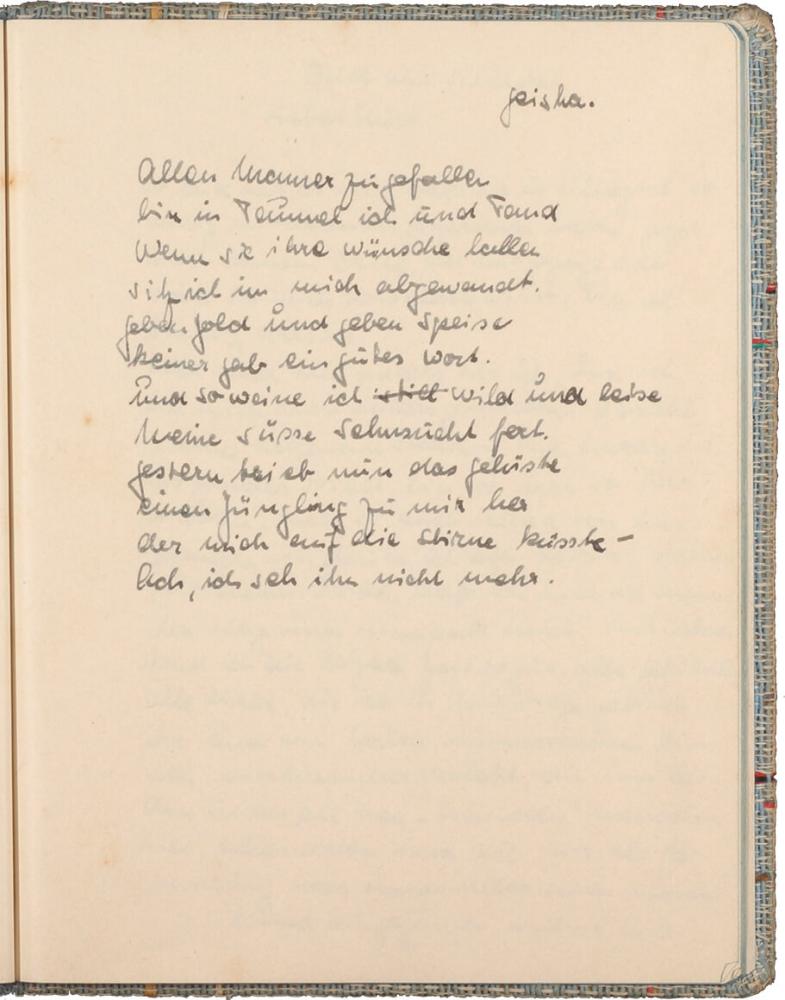 Geisha.
Allen Männer zu gefallen
bin in Taumel ich und Tand
Wenn sie ihre wünsche lallen
sitz ich in mich abgewandt.
geben gold und geben speise
keiner gab ein gutes wort.
Und so weine ich still wild und leise
Meine süsse sehnsucht fort.
gestern trieb nun das gelüste
einen Jüngling zu mir her
der mich auf die Stirne küsste –
Ach, ich seh ihn nicht mehr.